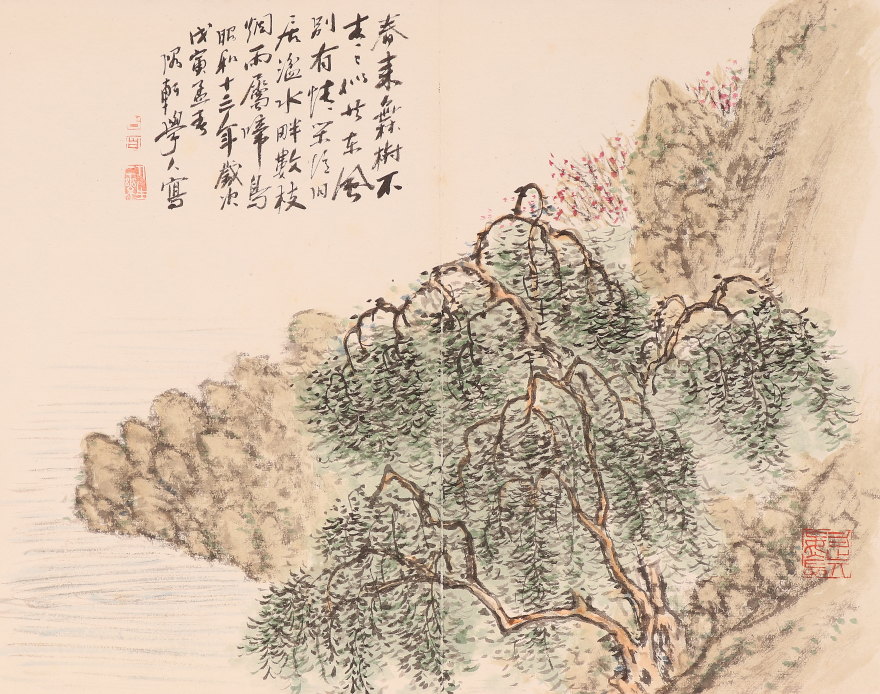 春来無樹不
青々似共東風
別有情閑憶旧
居湓水畔數枝
烟雨屬啼鳥
昭和十三年歲次
戊寅孟春
軒學人寫